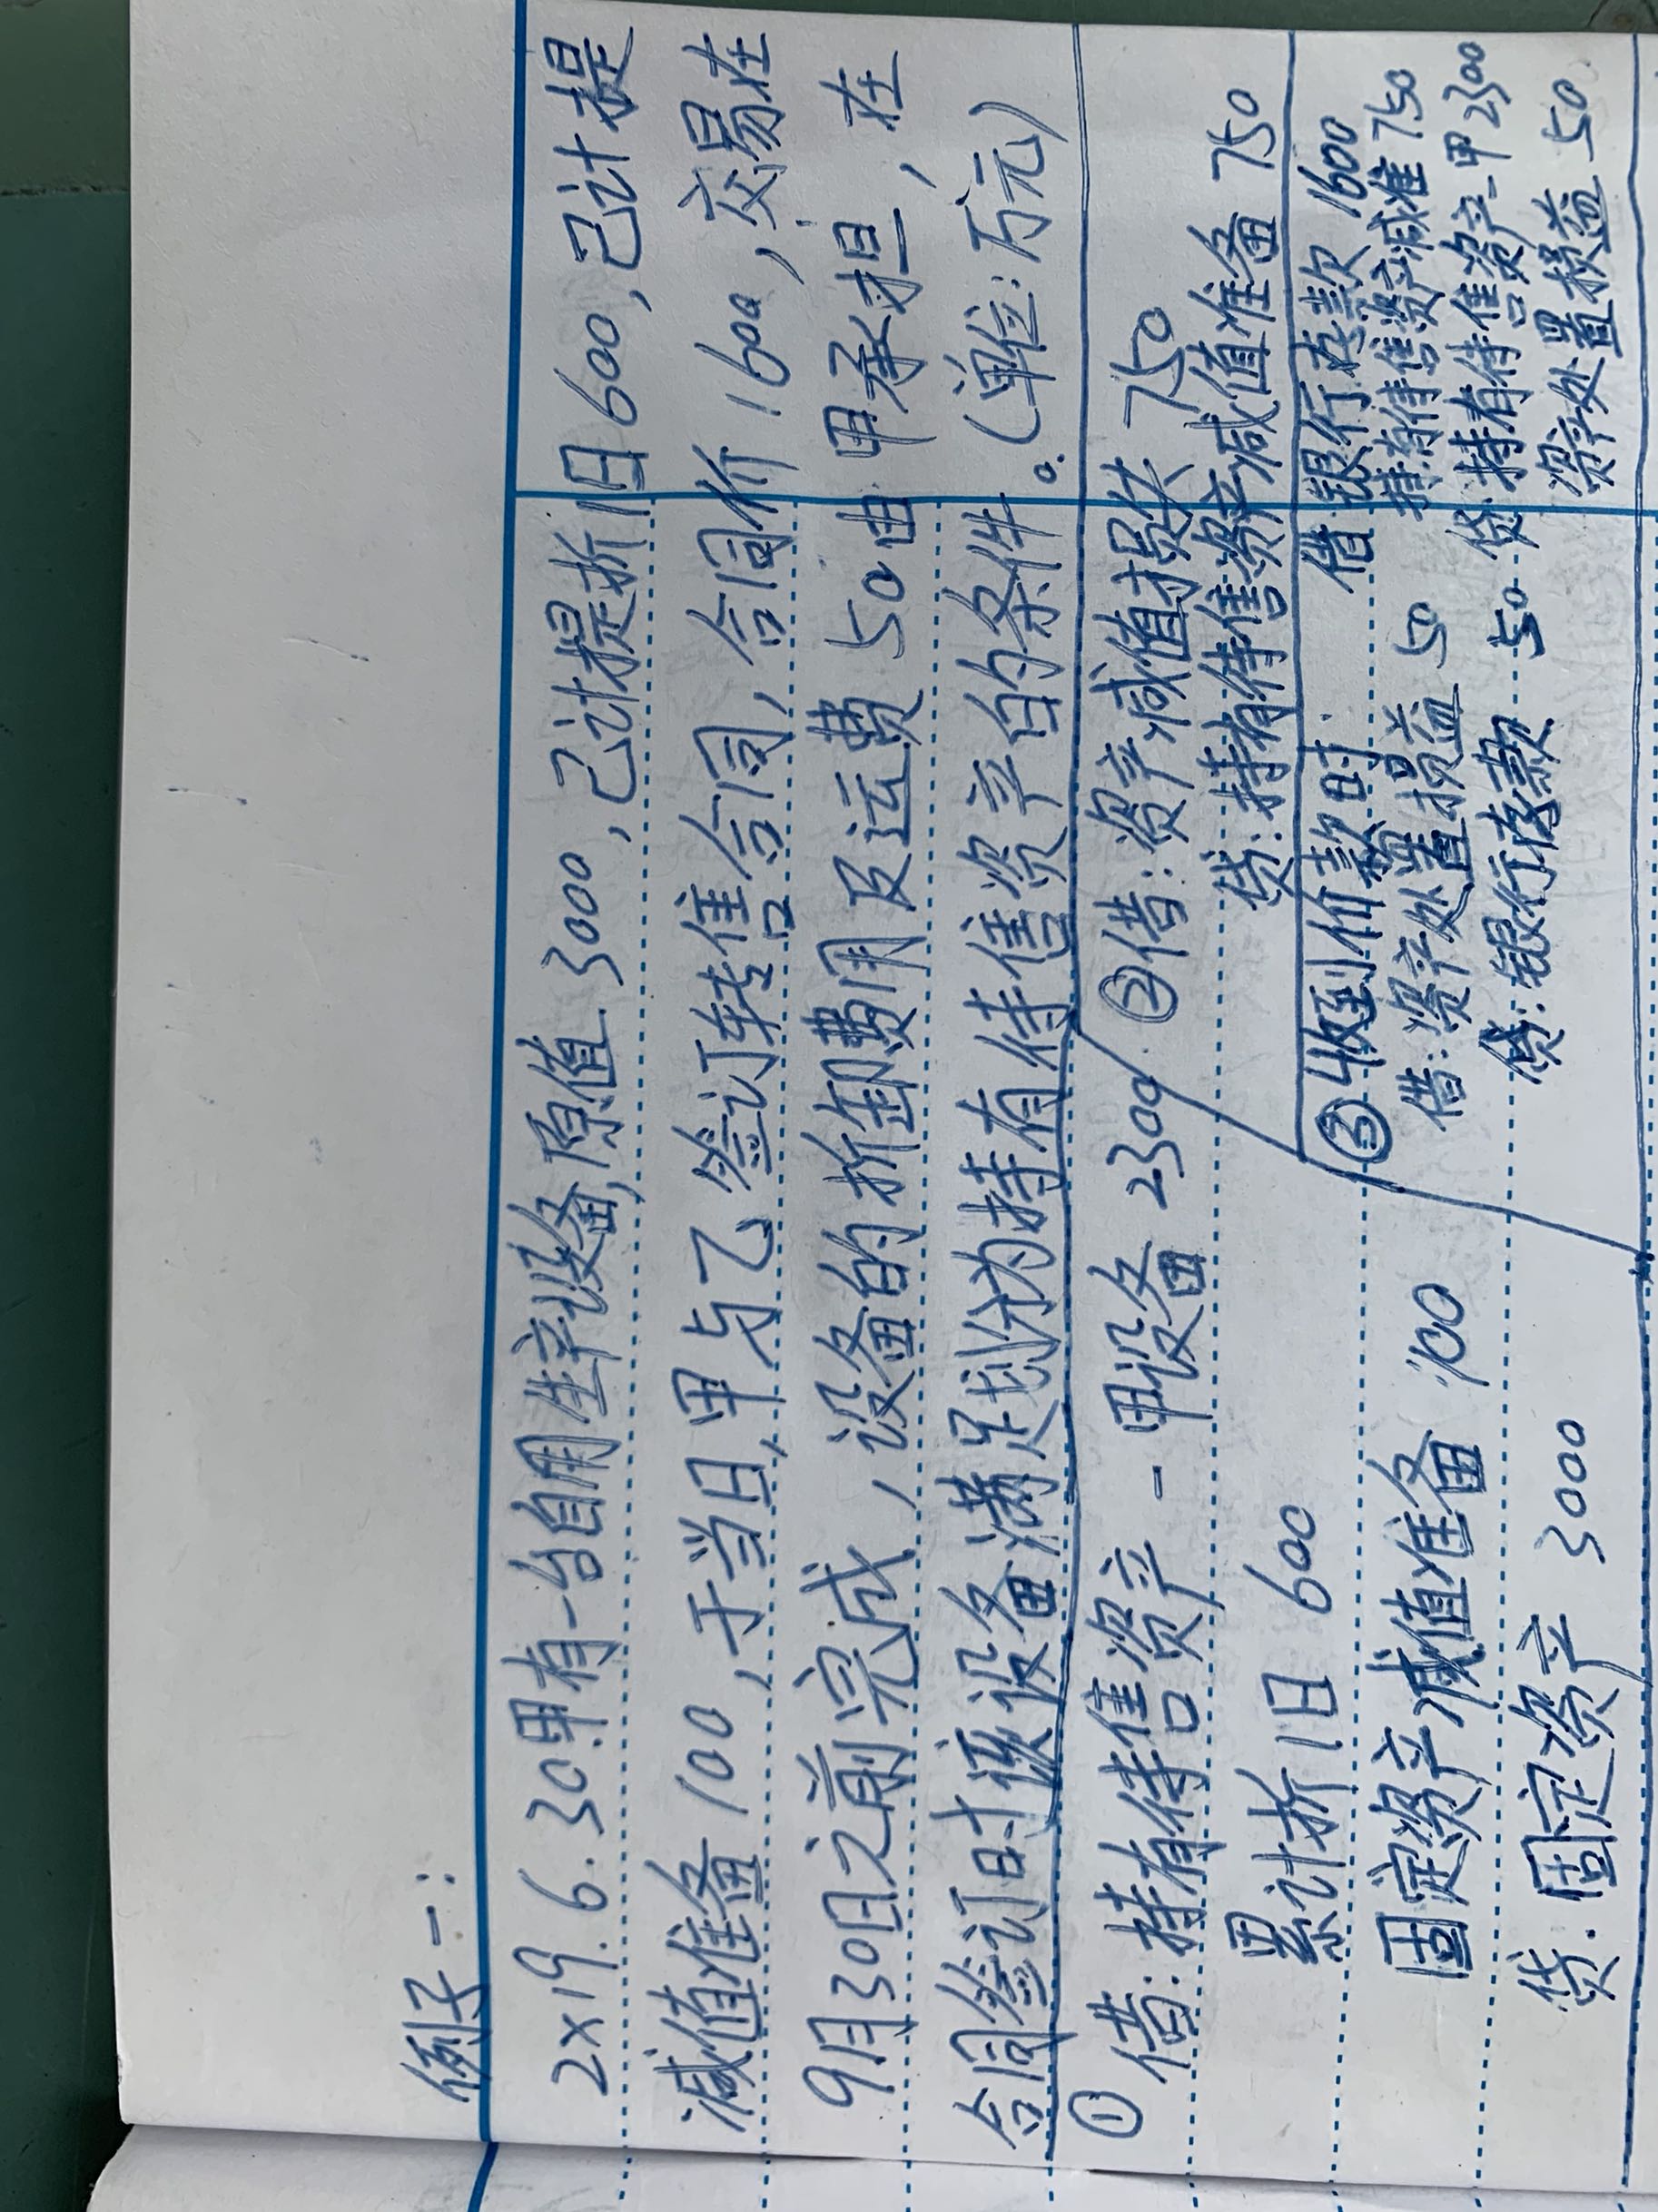 例子一:
2×19.6.30甲有一台自用生产设备,原值3000,己计提折旧600,己计提
减值准备100,于当日,甲与乙签订转售合同,合同价1600,交易在
9月30日之前完成,设备的拆卸费用及运费50由甲承担,在
合同签订时该设备满足划分为持有待售资产的条件。(单位:万元)
① 借:持有待售资产-甲设备 2300
累计折旧 600
固定资产减值准备 100
贷:固定资产 3000
②借:资产减值损失 750
贷:持有待售资产减值准备 750
③收到价款时
借:资产处置损益 50
贷:银行存款 50
借 银行存款 1600
持有待售资产减准 750
贷 持有待售资产-甲 2300
资产处置损益 50